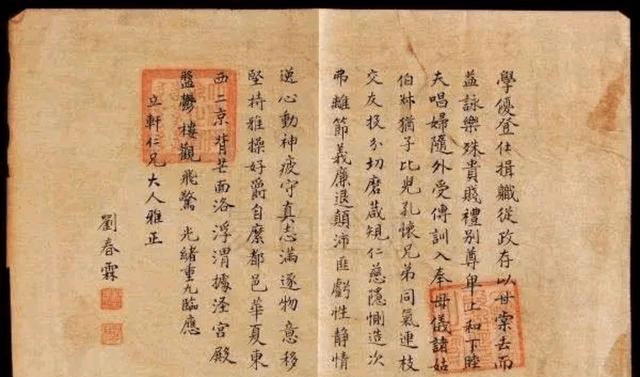 學優登仕攝職從政存以甘棠去而
益詠樂殊貴賤禮別尊卑上和下睦
夫唱婦隨外受傳訓入奉母儀諸姑
伯叔猶子比兒孔懷兄弟同氣連枝
交友投分切磨葴規仁慈隱惻造次
弗離節義廉退顛沛匪虧性静情
逸心動神疲守真志滿逐物意移
堅持雅操好爵自縻都邑華夏東
西二京背芒面洛浮渭據涇宮殿
盤鬱樓觀飛驚光緒重九臨應
立軒仁兄大人雅正
劉春霖